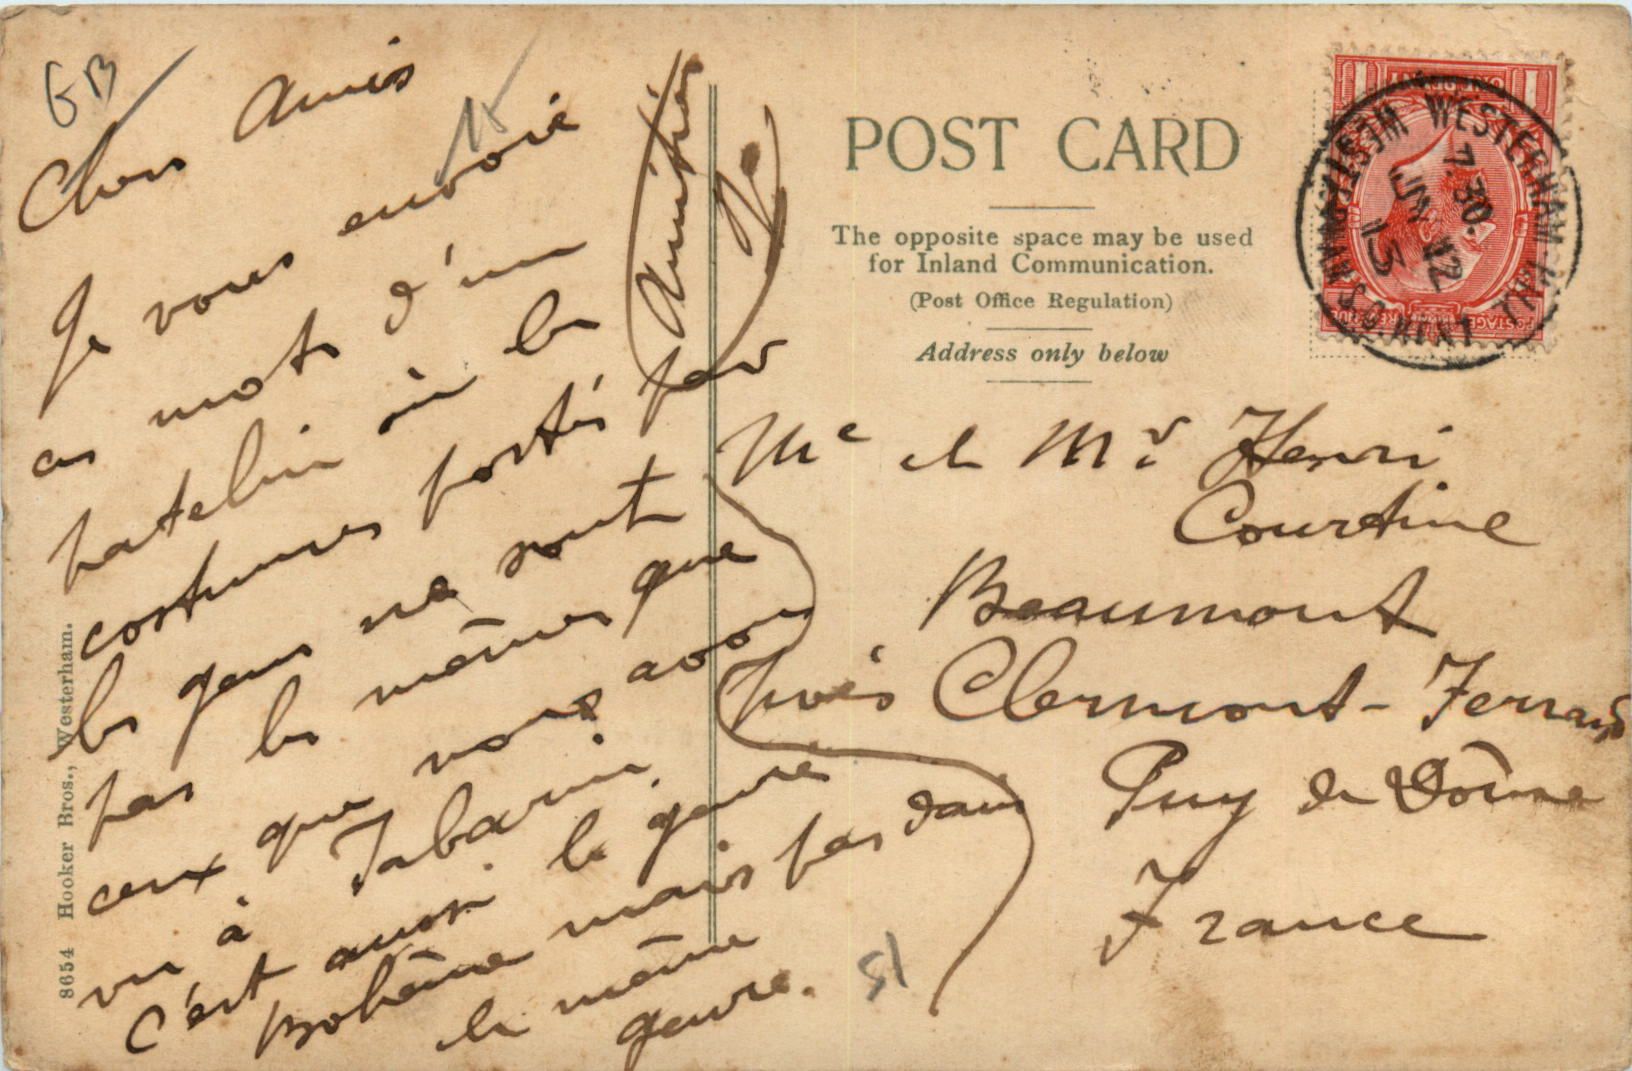 GB
Chers Amis
Je vous envoie
ces mots d'un
patelin où les
costumes portés par
les gens ne sont
pas les mêmes que
ceux que nous avons
vu à Tabarin.
C'est aussi le genre
Bohême mais pas dans
le même
genre.
Amitiés
POST CARD
The opposite space may be used
for Inland Communication.
(Post Office Regulation)
Address only below
WESTERHAM
7.30
JN 12
13
POSTAGE REVENUE
Me et Mr Henri
Courtine
Beaumont
près Clermont-Ferrand
Puy de Dôme
France
51
8654 Hooker Bros., Westerham.